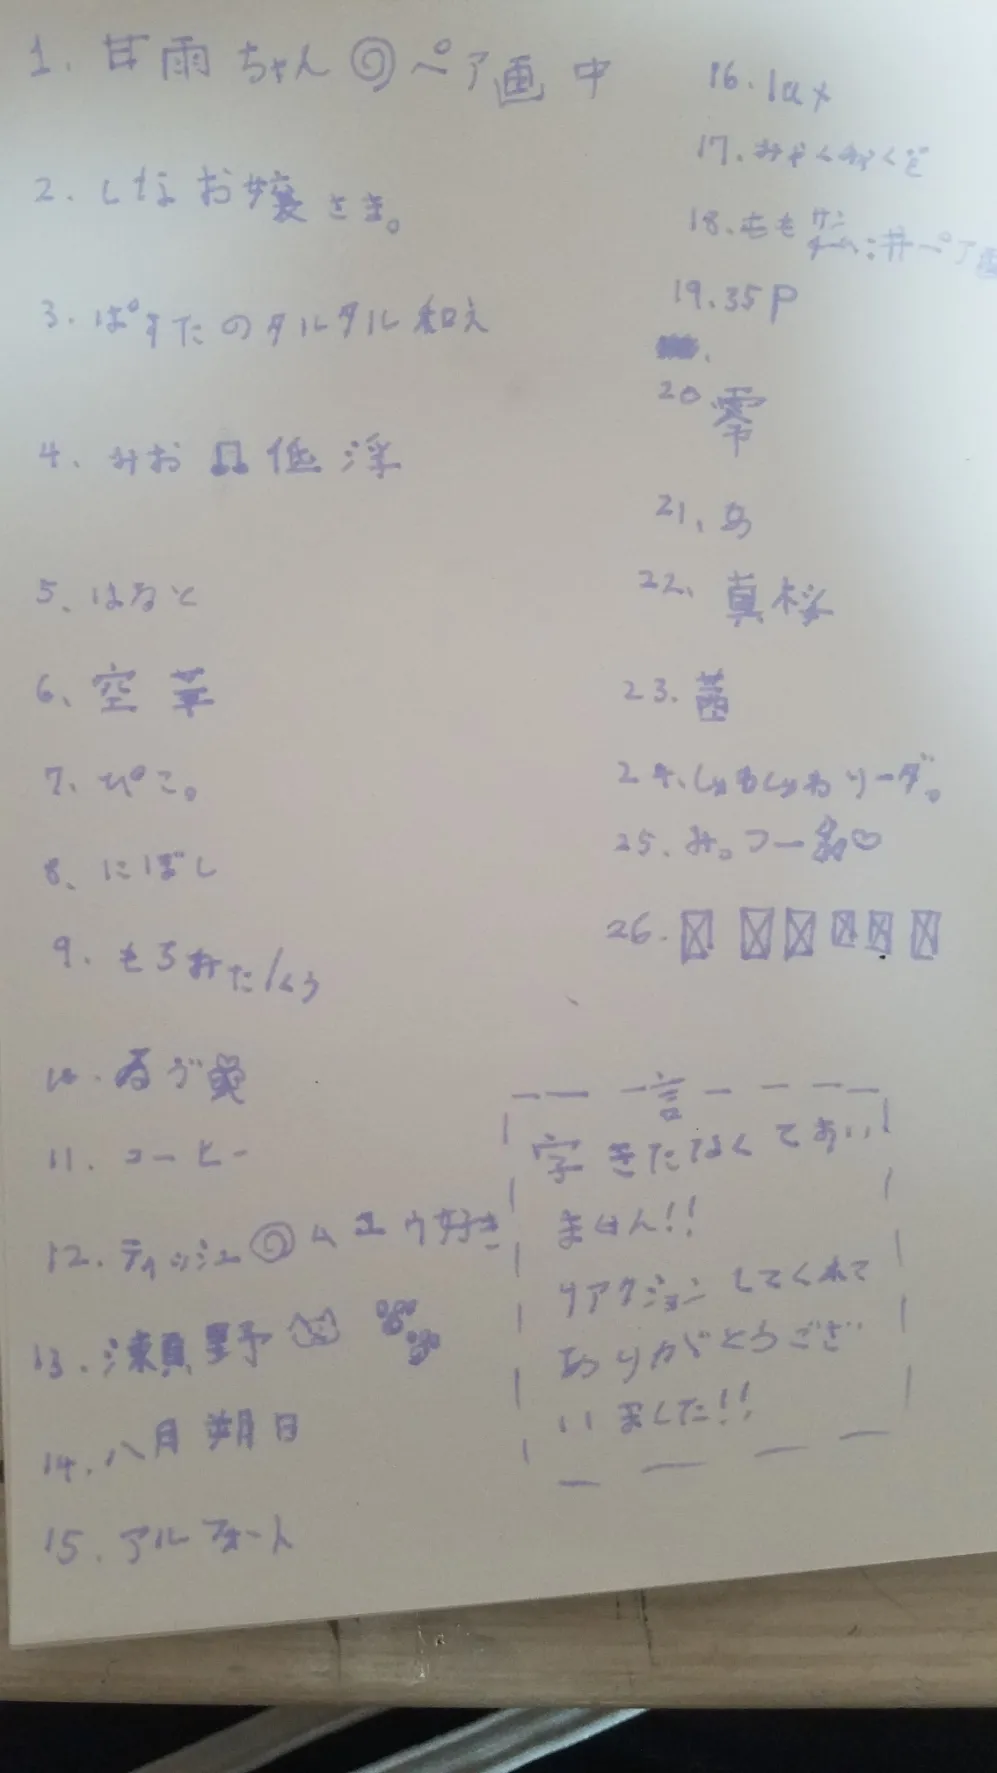 1. 甘雨ちゃん@ペア画中
2. しなお嬢さま。
3. ぱすたのタルタル和え
4. みお 低浮
5. はると
6. 空
7. ぴこ。
8. にぼし
9. もろみた/くう
10. るゔ
11. コーヒー
12. ティッシュ@ムユウ好き
13. 瀬野
14. 八月朔日
15. アルフォート
16. lax
17. みゃくみゃくど
18. もも ペア画
19. 35P
20. 零
21. あ
22. 真桜
23. 茜
24. しゅわしゅわリーダ。
25. み。つー
26.
一言
字きたなくてすい
ません!!
リアクションしてくれて
ありがとうござ
いました!!